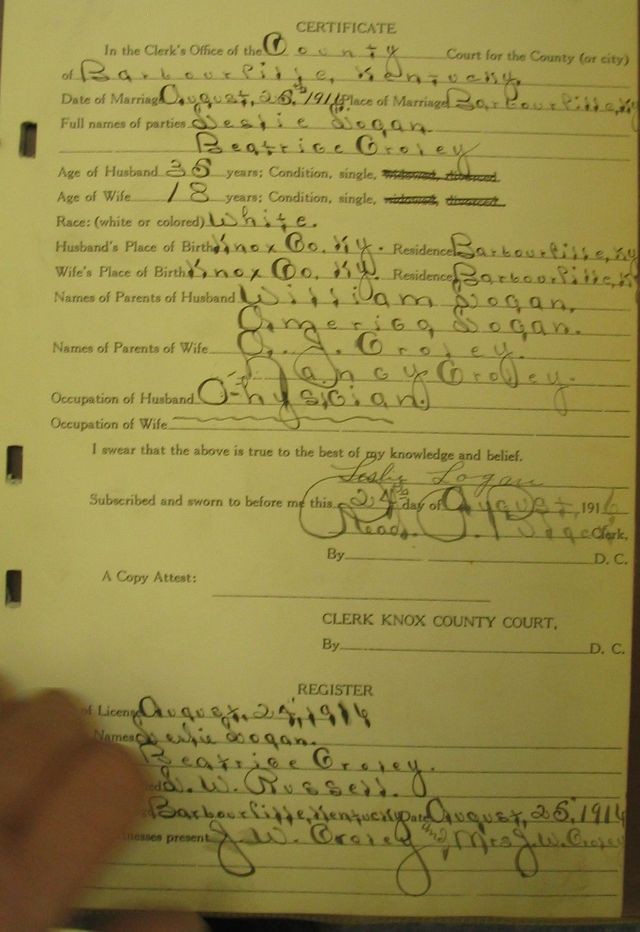 CERTIFICATE
In the Clerk's Office of the County Court for the County (or city)
of Barbourville, Kentucky.
Date of Marriage August, 25th 1916 Place of Marriage Barbourville, Ky
Full names of parties Leslie Logan.
Beatrice Croley
Age of Husband 35 years; Condition, single, widowed, divorced
Age of Wife 18 years; Condition, single, widowed, divorced
Race: (white or colored) White.
Husband's Place of Birth Knox Co. Ky. Residence Barbourville, Ky
Wife's Place of Birth Knox Co. Ky. Residence Barbourville, Ky
Names of Parents of Husband William Logan.
America Logan.
Names of Parents of Wife J. Croley.
Nancy Croley.
Occupation of Husband Physician.
Occupation of Wife
I swear that the above is true to the best of my knowledge and belief.
Leslie Logan
Subscribed and sworn to before me this 24th day of August, 1916
Read Clerk,
By D. C.
A Copy Attest:
CLERK KNOX COUNTY COURT.
By D. C.
REGISTER
of License August, 24, 1916
Names Leslie Logan.
Beatrice Croley.
W. Russell.
Barbourville, Kentucky Date August, 25, 1916
nesses present J. W. Croley and, Mrs J. W. Croley